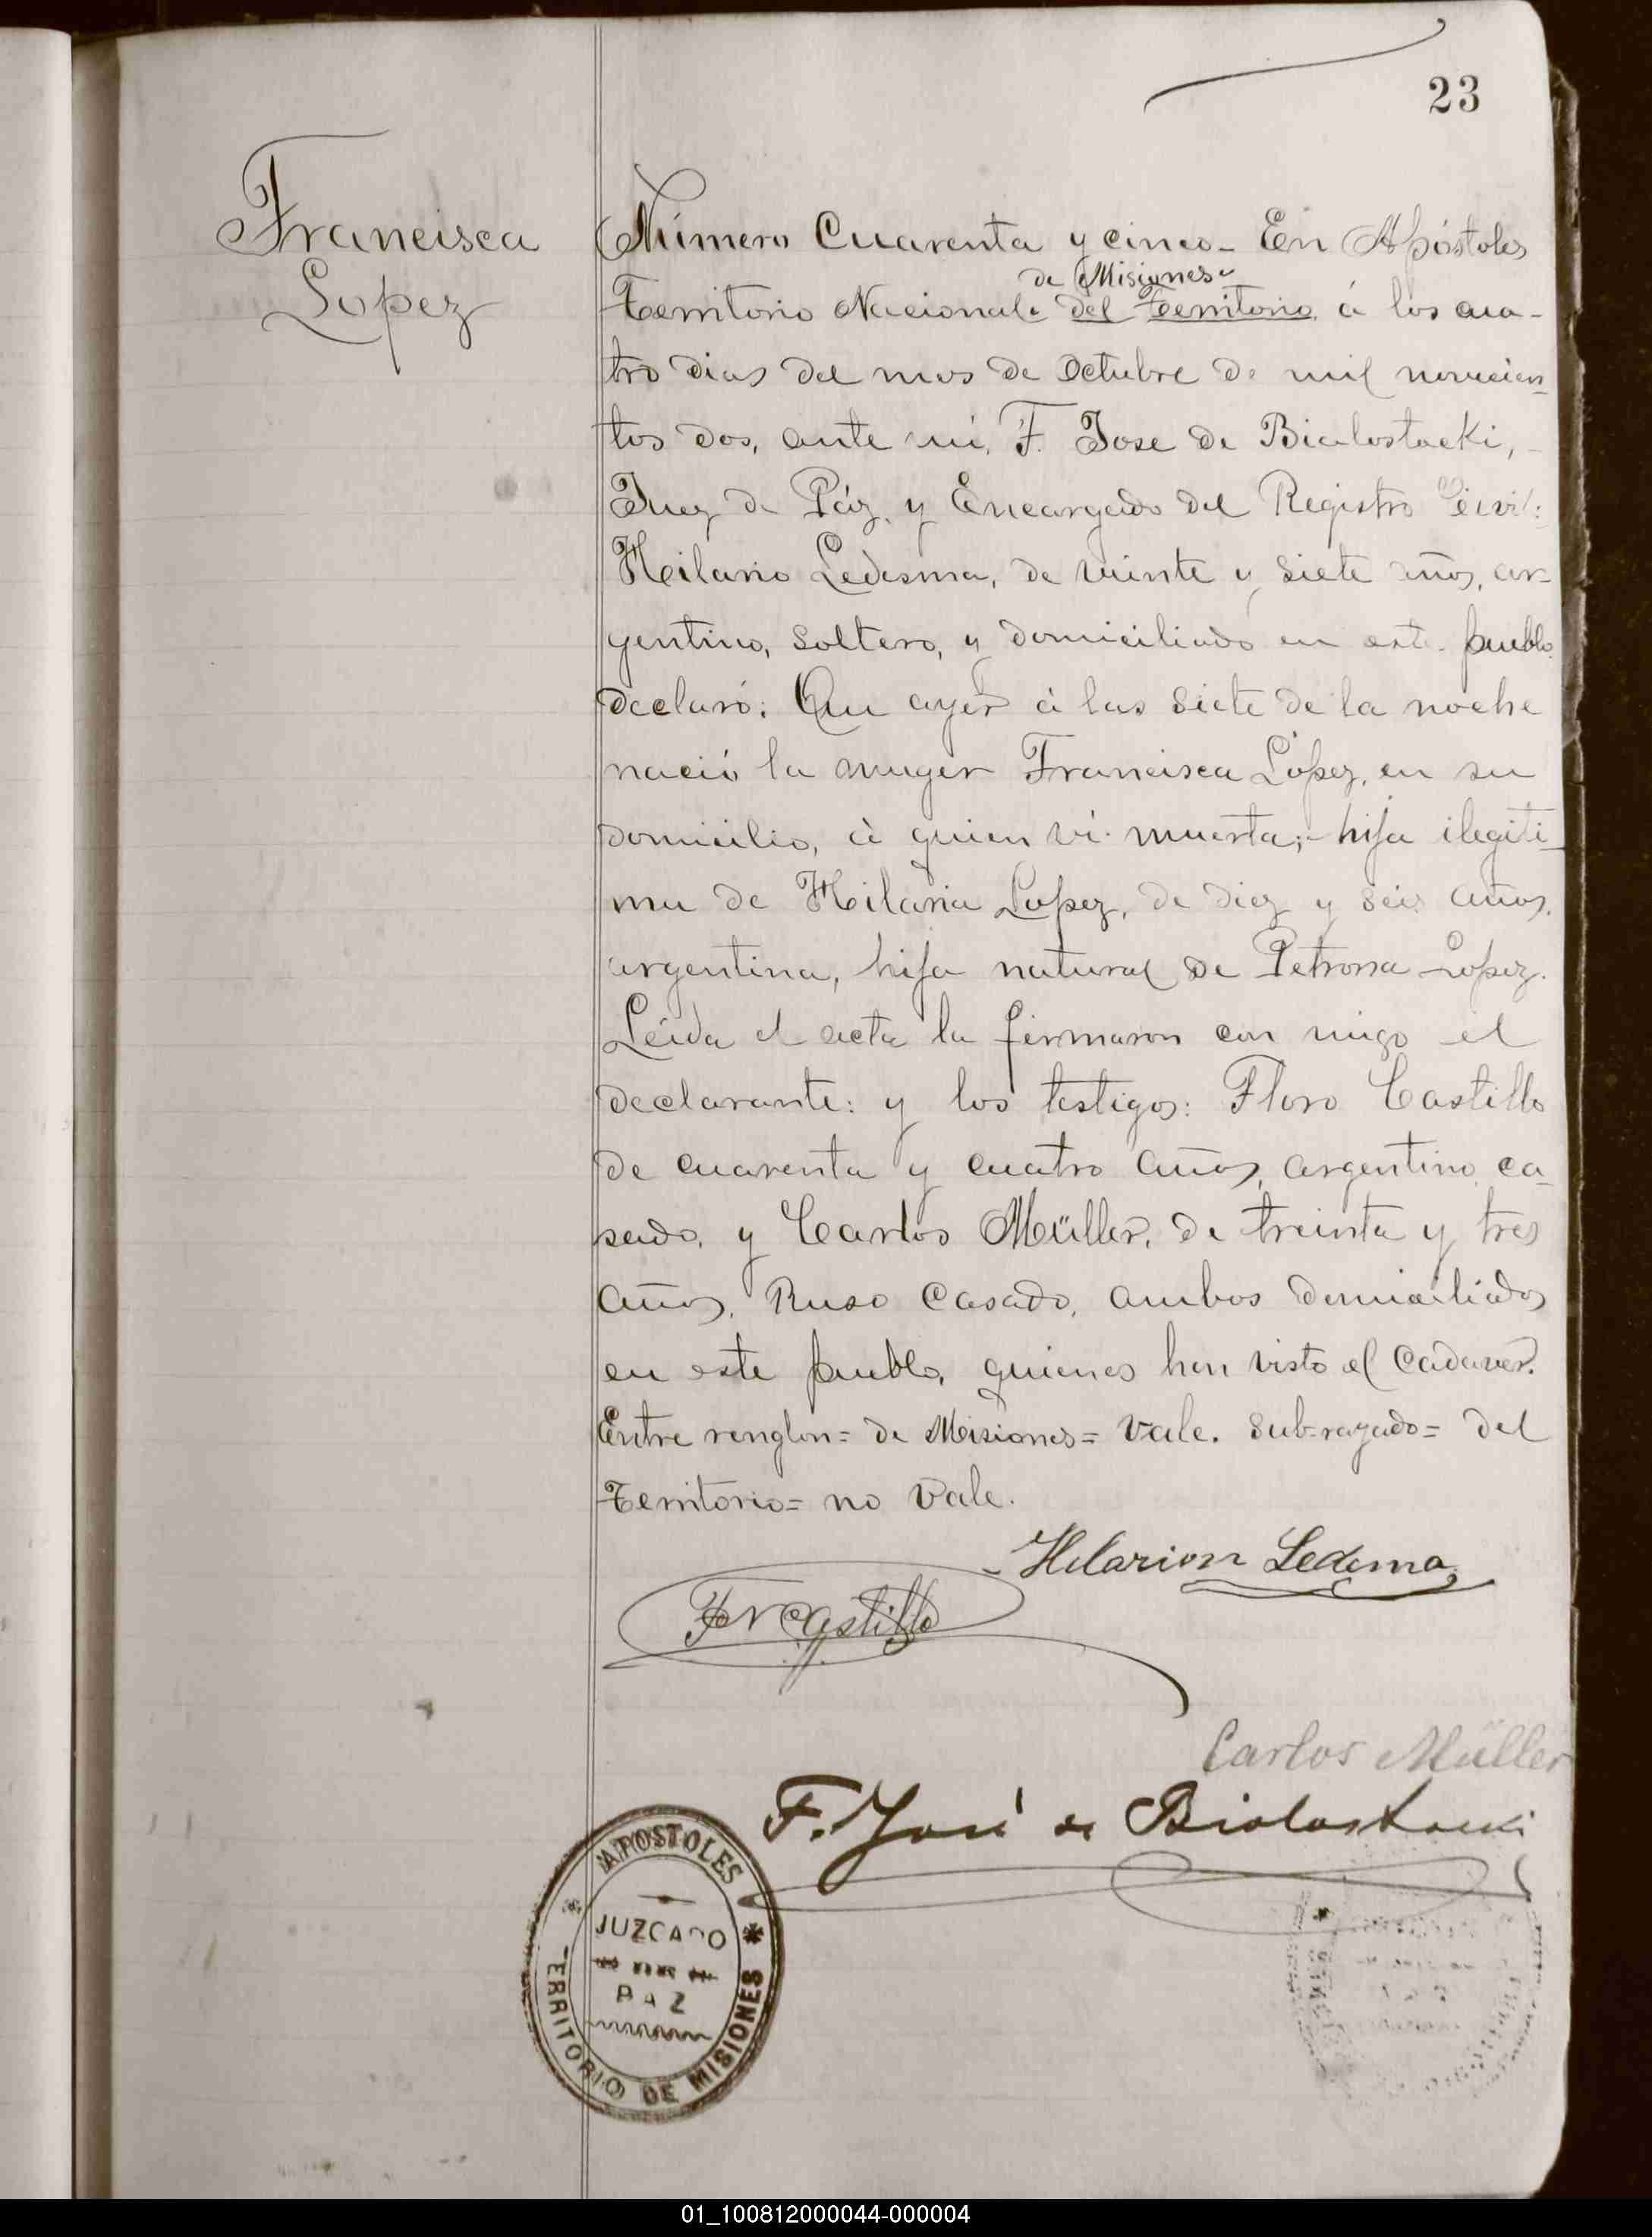 23
Francisca
Lopez
Número Cuarenta y cinco- En Apóstoles
de Misiones-
Territorio Nacional. del Territorio, á los cua-
tro dias del mes de Octubre de mil novecien-
tos dos, ante mí, F. Jose de Bialostocki, -
Juez de Páz, y Encargado del Registro Civil:
Hilario Ledesma, de veinte y siete años, ar-
gentino, soltero, y domiciliado en este pueblo
declaró: Que ayer á las siete de la noche
nació la muger Francisca López, en su
domicilio, á quien ví muerta;- hija ilegíti-
ma de Hilaria Lopez, de diez y seis años,
argentina, hija natural de Petrona Lopez.
Leída el acta la firmaron con migo el
declarante: y los testigos: Floro Castillo
de cuarenta y cuatro años, argentino, ca-
sado, y Carlos Müller, de treinta y tres
años, Ruso Casado, ambos domiciliados
en este pueblo, quienes han visto el Cadaver.
Entre renglon= de Misiones= Vale. Sub-rayado= del
Territorio= no Vale.
Hilarion Ledema
F N Castillo
Carlos Müller
F. José de Bialostocki
APOSTOLES
JUZGADO
PAZ
TERRITORIO DE MISIONES
01_100812000044-000004